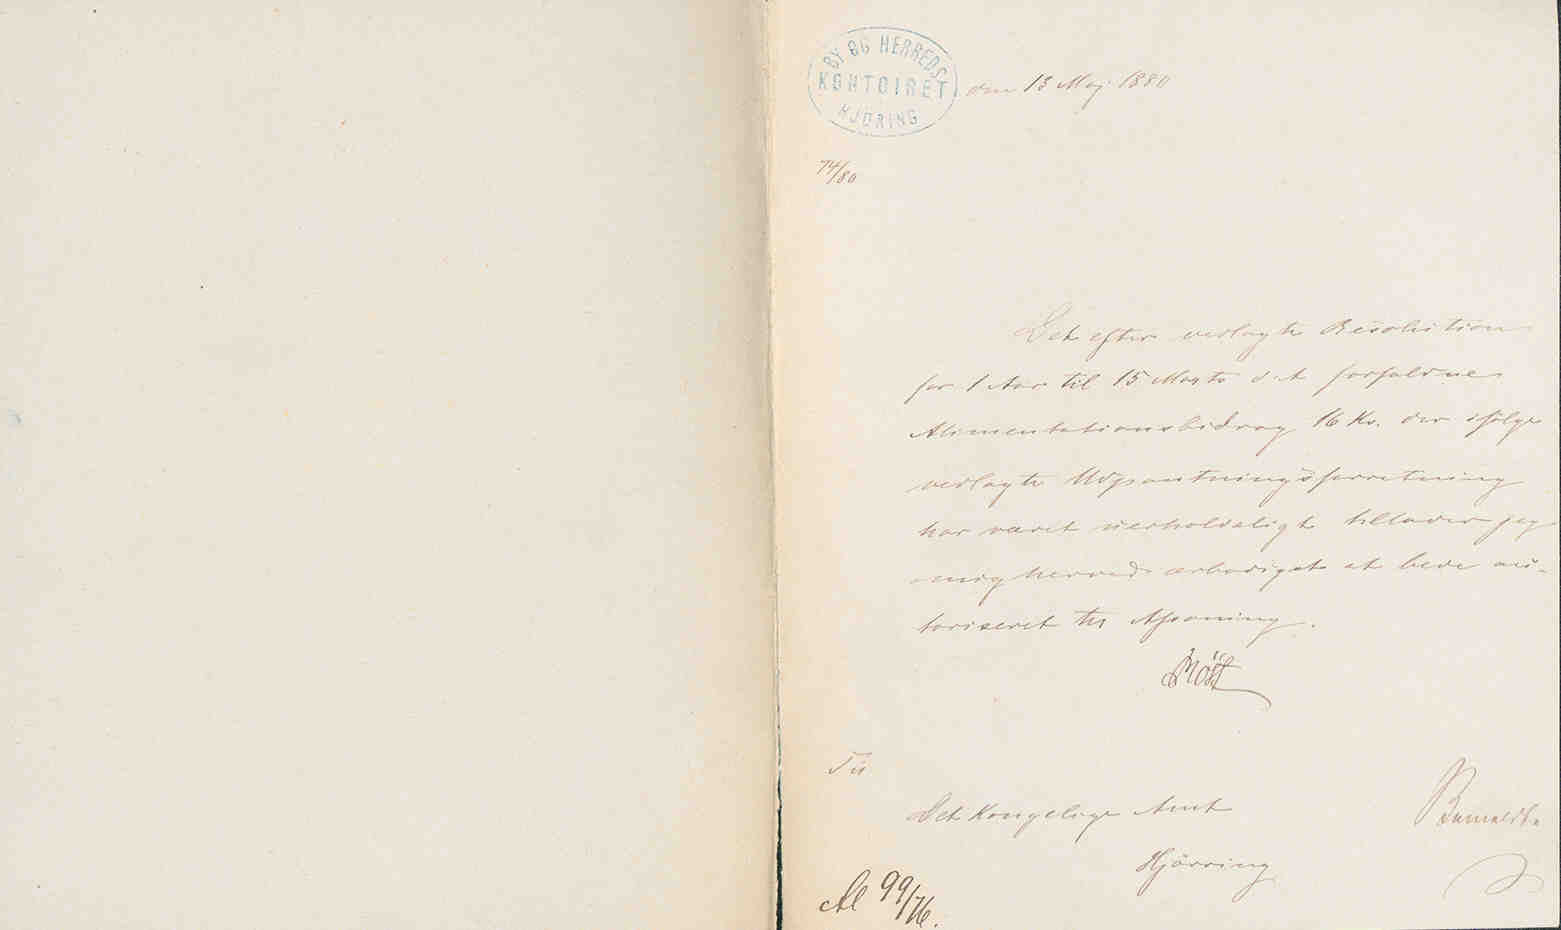 BY OG HERREDS
KONTOIRET
HJØRING
den 13 Maj 1880
74/80
Det efter vedlagte Resolution
for 1 Aar til 15 Marts d. A forfaldne
Alimentationsbidrag 16 Kr. der ifølge
vedlagte Udpantningsforretning
har været uerholdeligt tillader jeg
mig herved ærbødigst at bede au-
toriseret til Afsoning.
Til
Det Kongelige Amt
Hjørring
Al 99/76.